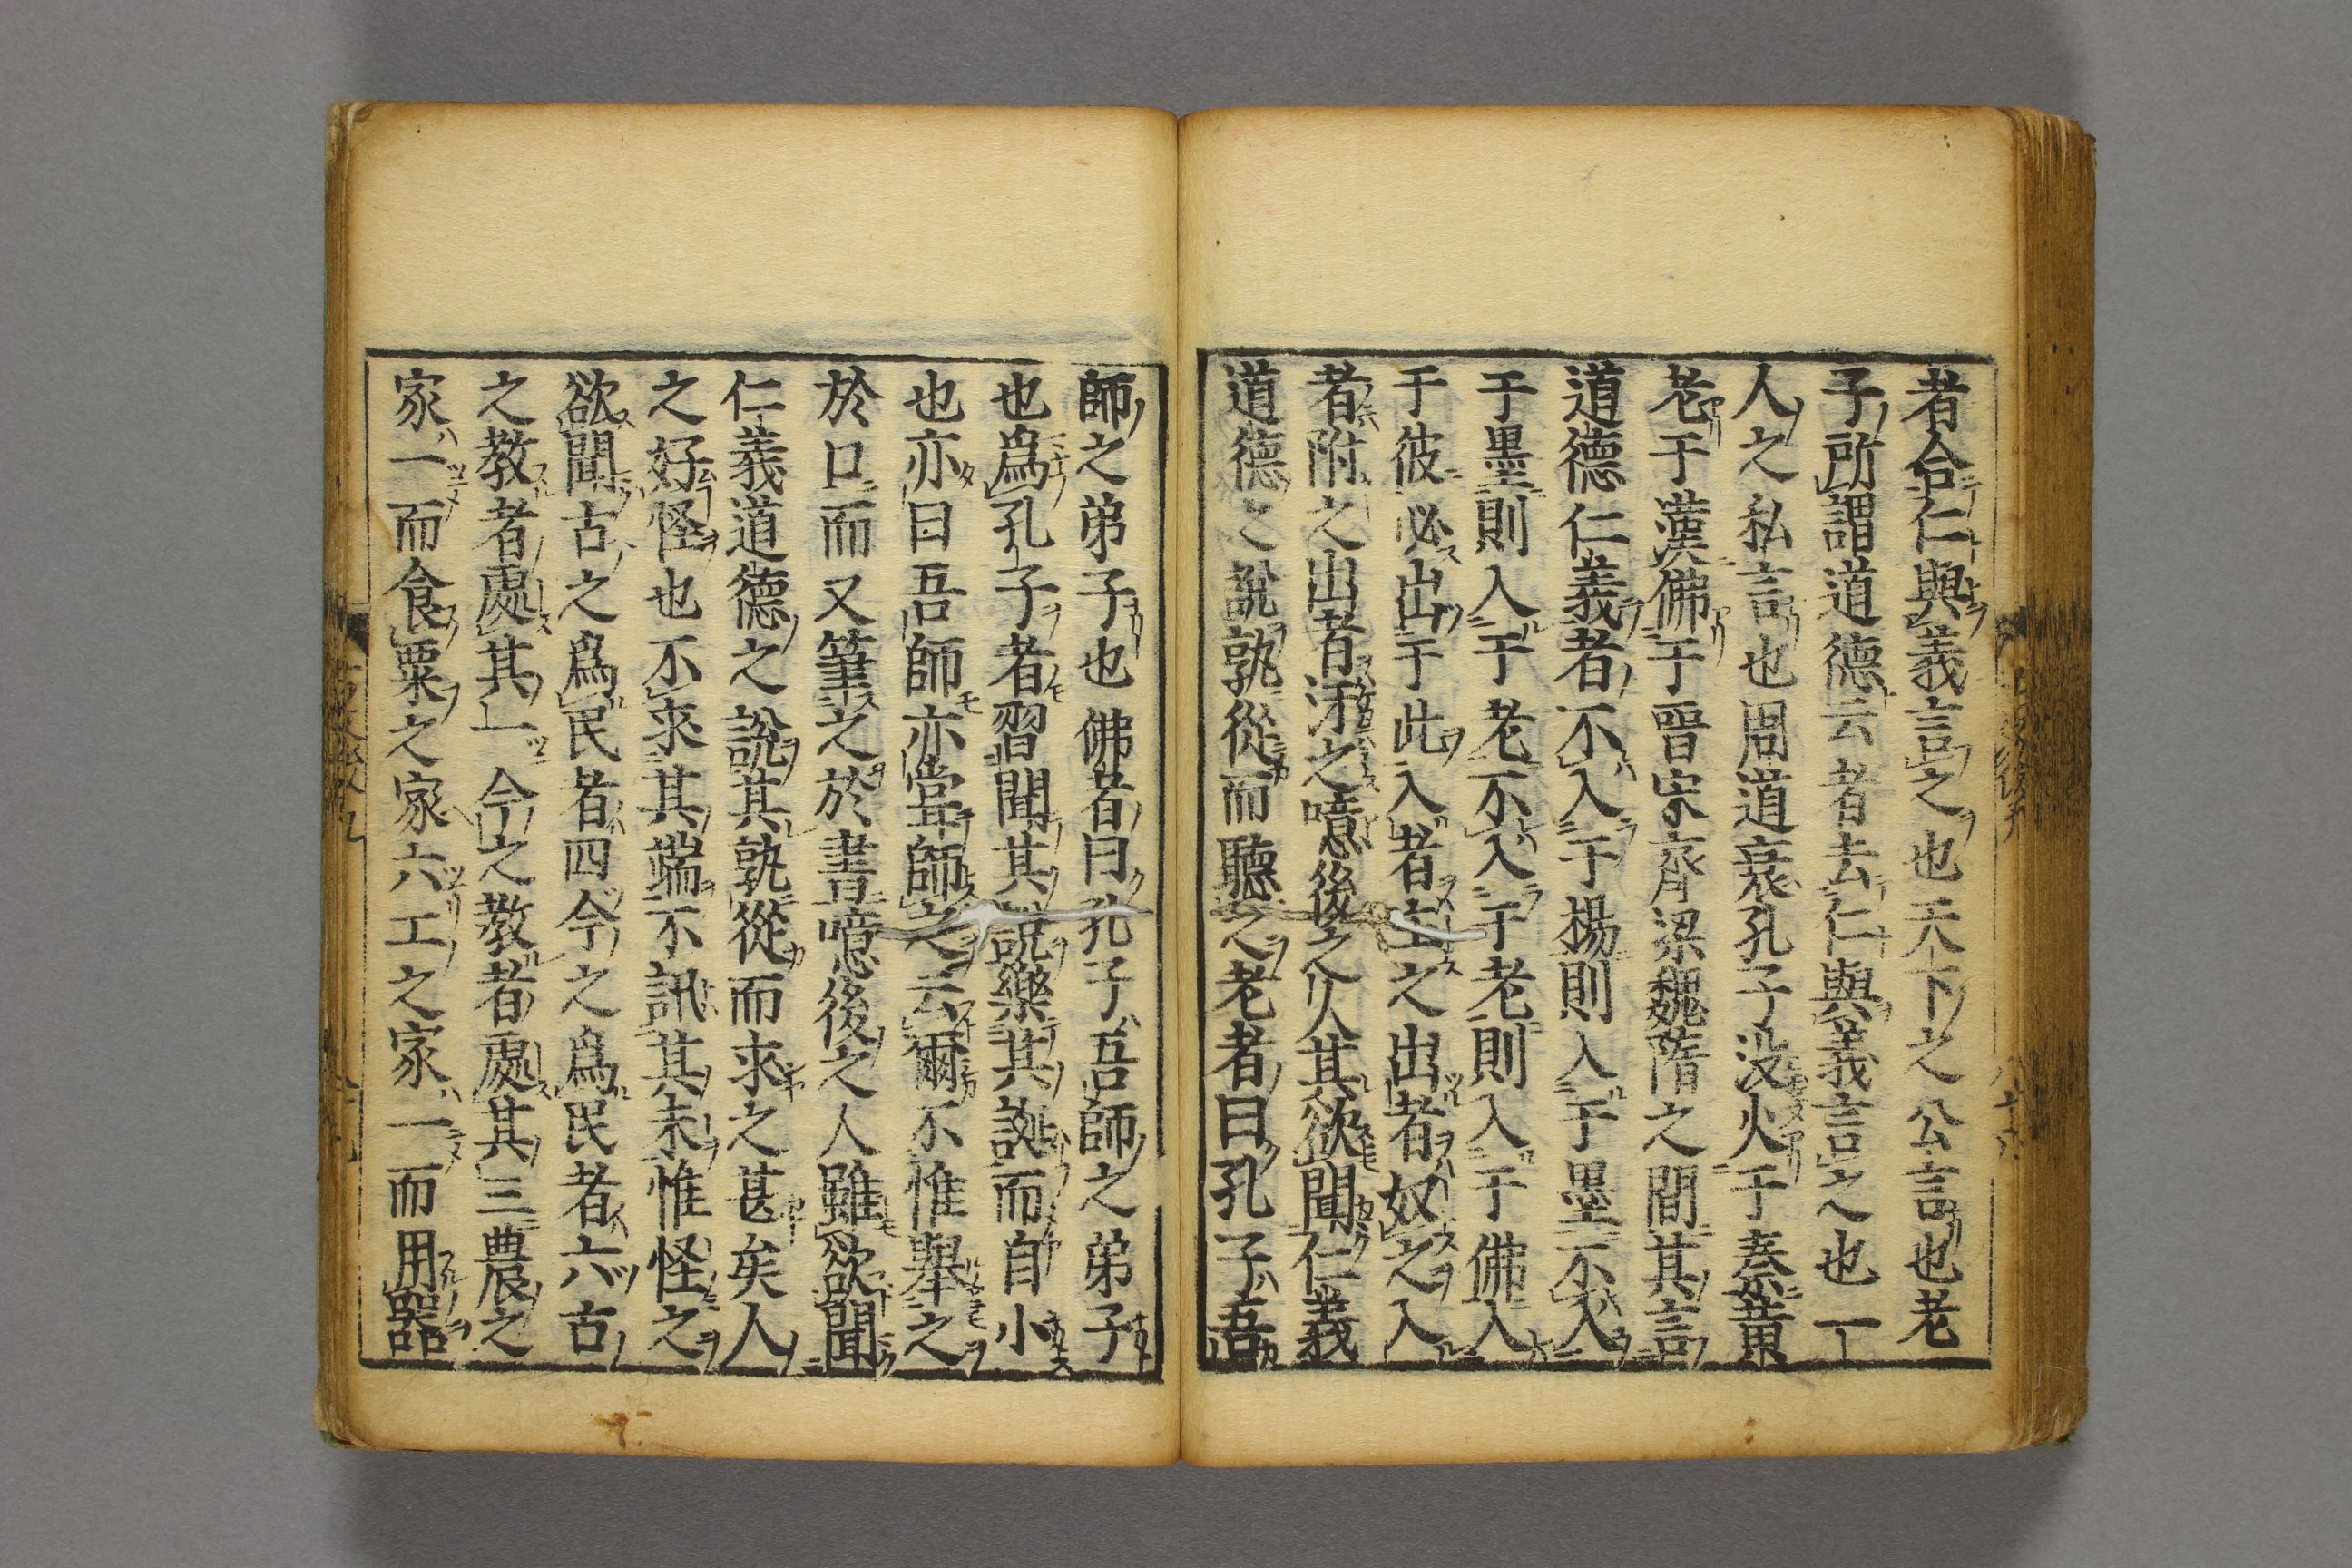 者合仁與義言之也天下之公言也老
子所謂道德云者去仁與義言之也一
人之私言也周道衰孔子没火于秦黄
老于漢佛于晉宋齊梁魏隋之間其言
道德仁義者不入于楊則入于墨不入
于墨則入于老不入于老則入于佛入
于彼必出于此入者主之出者奴之入
者附之出者汚之噫後之人其欲聞仁義
道德之說孰從而聽之老者曰孔子吾
師之弟子也佛者曰孔子吾師之弟子
也爲孔子者習聞其說樂其誕而自小
也亦曰吾師亦甞師之云爾不惟舉之
於口而又筆之於書噫後之人雖欲聞
仁義道德之說其孰從而求之甚矣人
之好怪也不求其端不訊其末惟怪之
欲聞古之爲民者四今之爲民者六古
之教者處其一今之教者處其三農之
家一而食粟之家六工之家一而用器